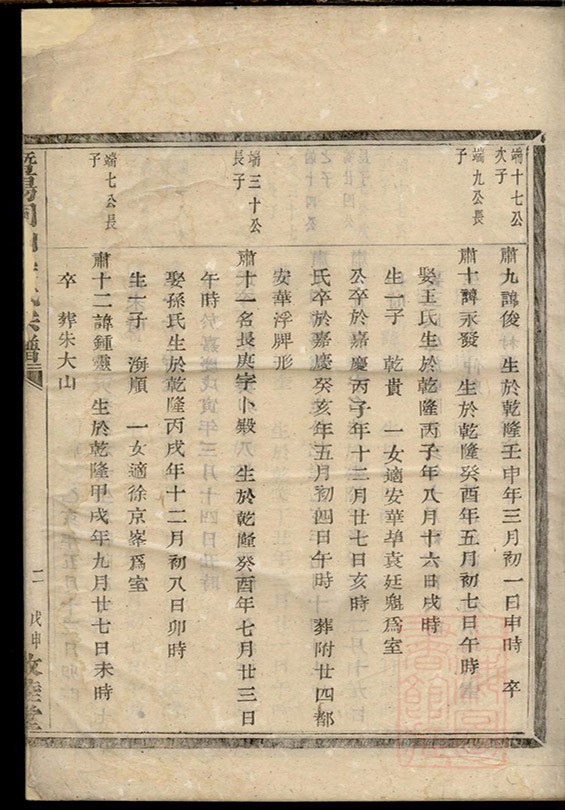 端十七公
次子
肅九諱俊 生於乾隆壬申年三月初一日申時 卒
端九公長
子
肅十諱永發 生於乾隆癸酉年五月初七日午時
娶王氏生於乾隆丙子年八月十六日戌時
生一子 乾貴 一女適安華 袁廷魁爲室
公卒於嘉慶丙子年十二月廿七日亥時
氏卒於嘉慶癸亥年五月初四日午時 葬附廿四都
安華浮牌形
端三十公
長子
肅十一名長庚字卜 生於乾隆癸酉年七月廿三日
午時
娶孫氏生於乾隆丙戌年十二月初八日卯時
生一子 海順 一女適徐京峯爲室
端七公長
子
肅十二諱鍾靈 生於乾隆甲戌年九月廿七日未時
卒 葬朱大山
暨陽 宗譜
二 戊申 敦睦堂